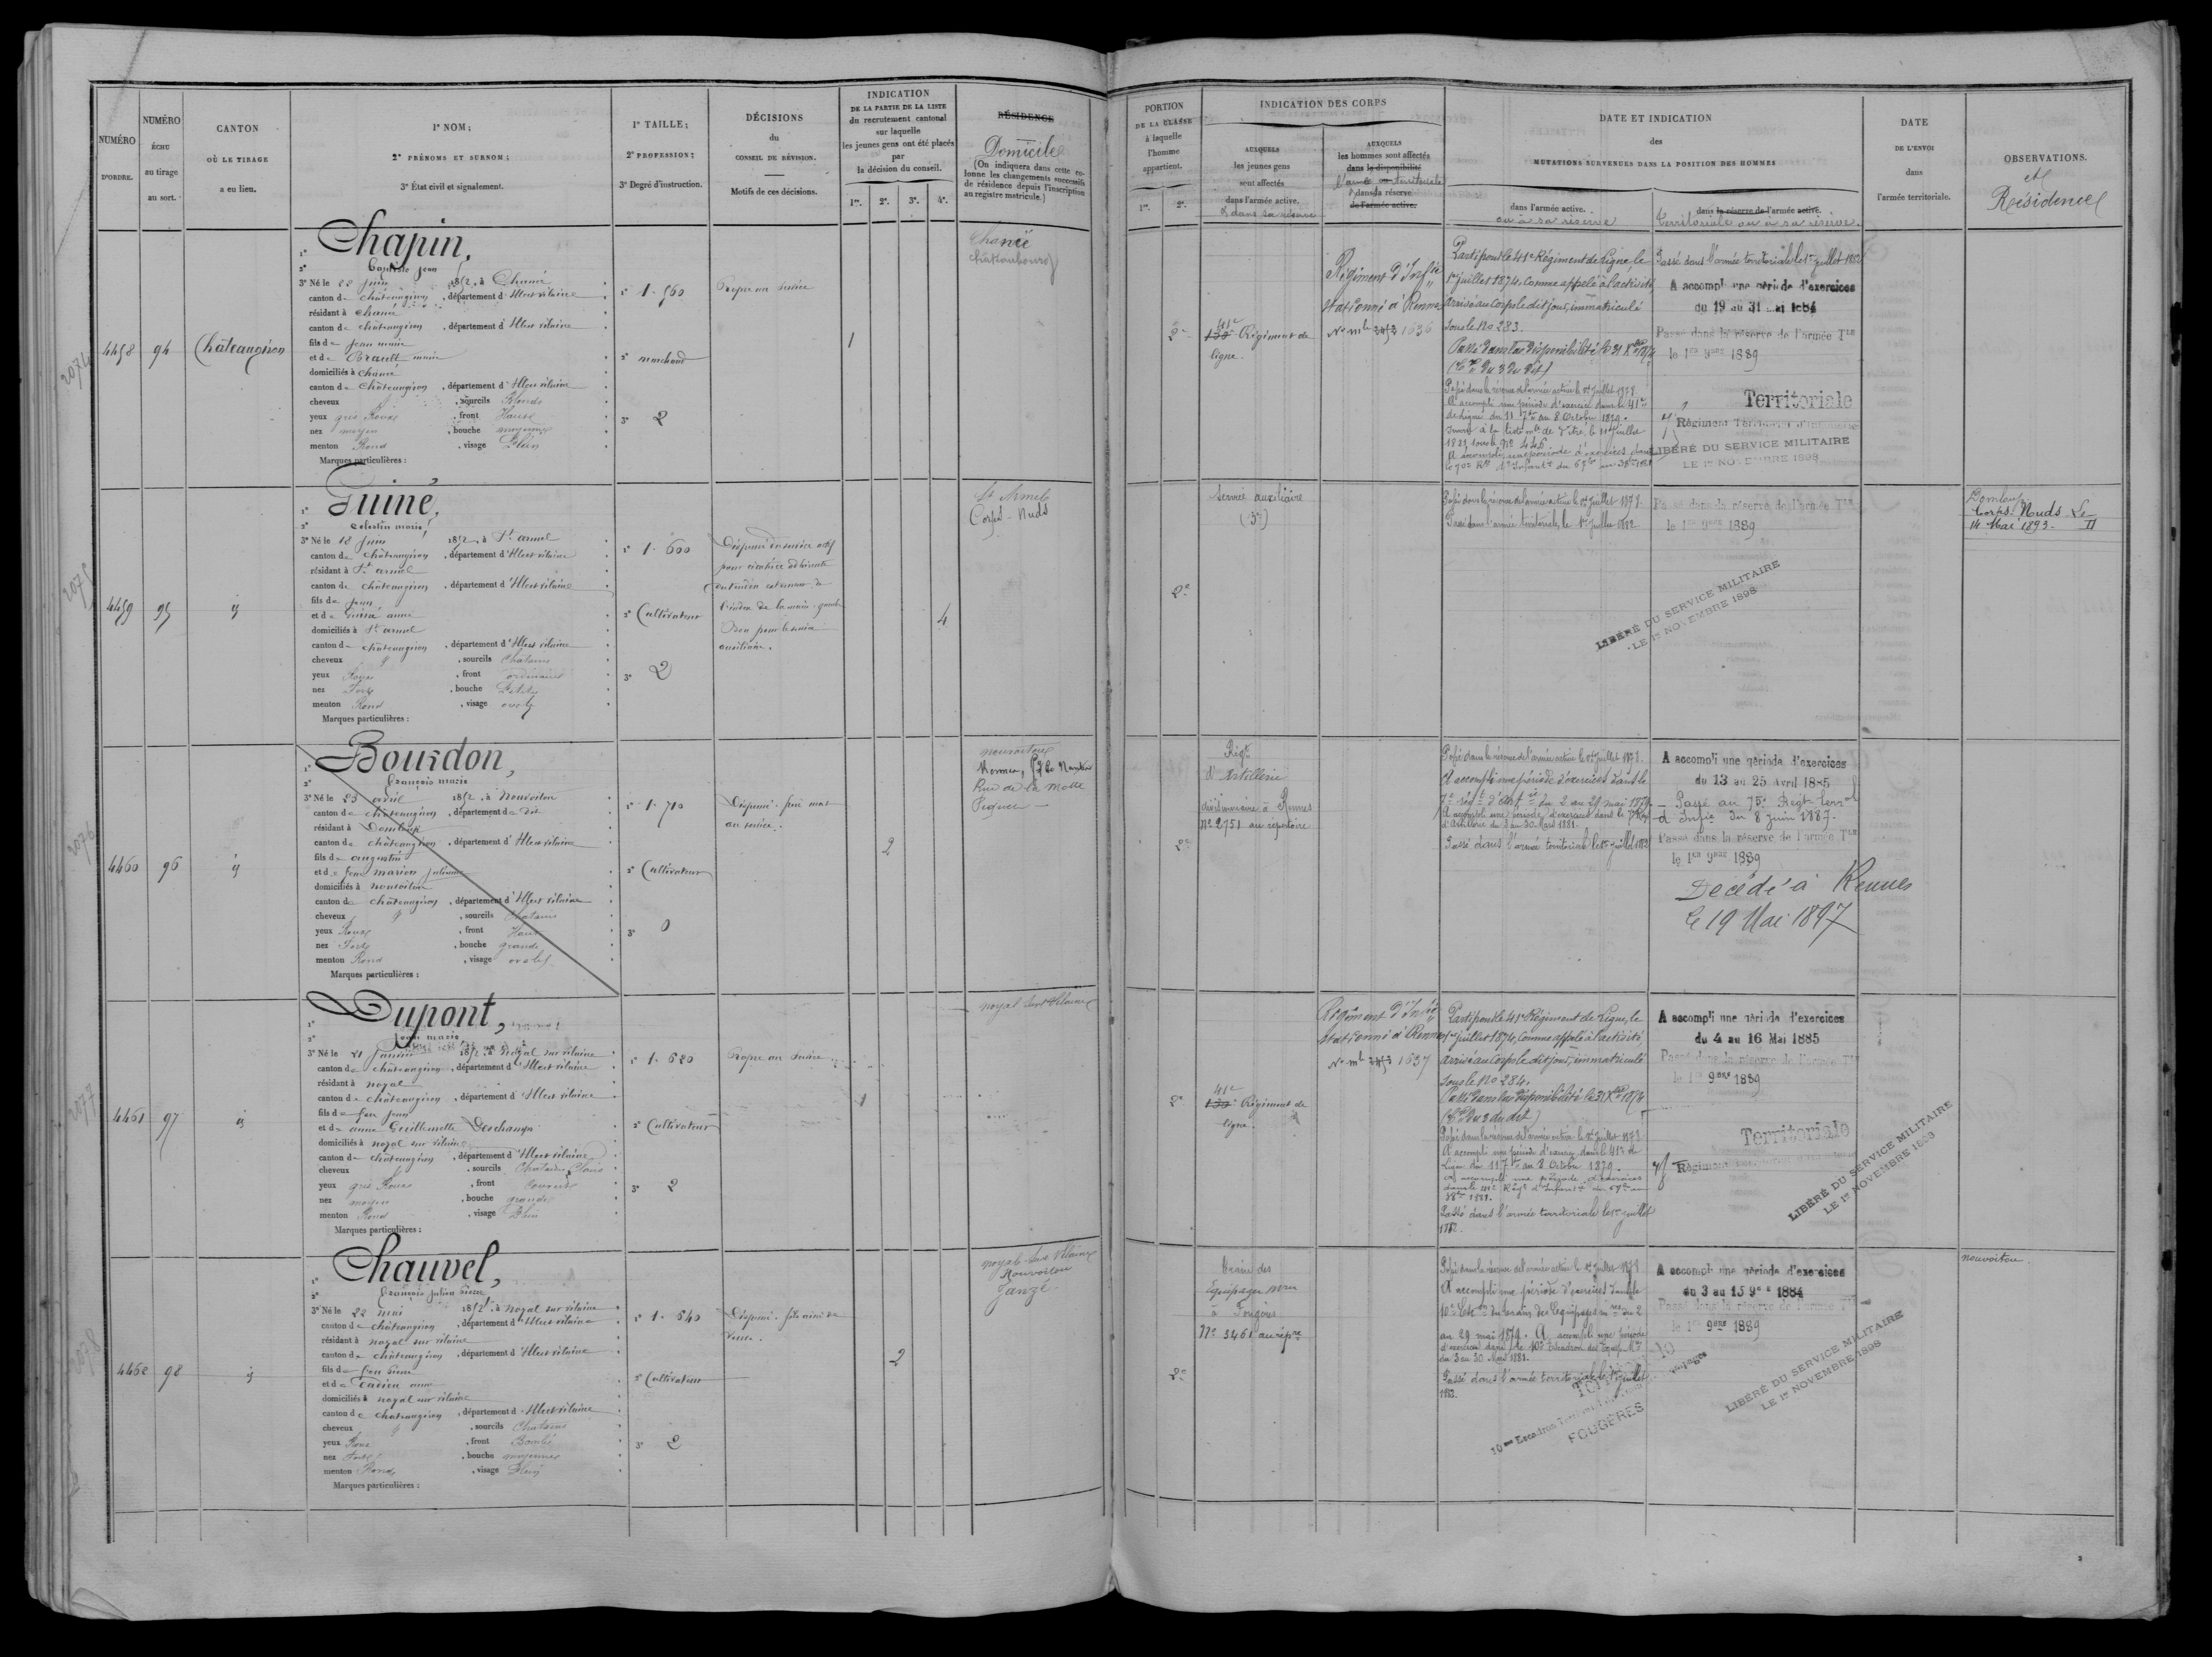 NUMÉRO
D'ORDRE.
NUMÉRO
ÉCHU
au tirage
au sort.
CANTON
OÙ LE TIRAGE
a eu lieu.
1° NOM;
2° PRÉNOMS ET SURNOM;
3° État civil et signalement.
1° TAILLE;
2° PROFESSION;
3° Degré d'instruction.
DÉCISIONS
du
CONSEIL DE RÉVISION.
Motifs de ces décisions.
INDICATION
DE LA PARTIE DE LA LISTE
du recrutement cantonal
sur laquelle
les jeunes gens ont été placés
par
la décision du conseil.
1re. 2e. 3e. 4e.
RÉSIDENCE
Domicile
(On indiquera dans cette co-
lonne les changements successifs
de résidence depuis l'inscription
au registre matricule.)
PORTION
DE LA CLASSE
à laquelle
l'homme
appartient.
1re. 2e.
INDICATION DES CORPS
AUXQUELS
les jeunes gens
sont affectés
dans l'armée active.
& dans sa réserve
AUXQUELS
les hommes sont affectés
dans la disponibilité
l'armée ou territoriale
& dans la réserve
de l'armée active.
DATE ET INDICATION
des
MUTATIONS SURVENUES DANS LA POSITION DES HOMMES
dans l'armée active.
ou à sa réserve
dans la réserve de l'armée active.
territoriale ou à sa réserve.
DATE
DE L'ENVOI
dans
l'armée territoriale.
OBSERVATIONS.
et
Résidence
2074
4458
94
Châteaugiron
1° Chapin,
2° Baptiste Jean
3° Né le 22 Juin 1852, à Chancé
canton de Châteaugiron, département d'Ille et vilaine
résidant à Chancé
canton de Châteaugiron, département d'Ille et vilaine
fils de Jean marie
et de Brault marie
domiciliés à Chancé
canton de Châteaugiron, département d'Ille et vilaine
cheveux &, sourcils Blonds
yeux gris Roux, front Hausé
nez moyen, bouche moyenne
menton Rond, visage Plein
Marques particulières :
1° 1. 560
2° marchand
3° 2
Propre au service
1
Chancé
Chateaubourg
2e
41e
130e Régiment de
ligne.
Régiment d'Inf.ie
stationné à Rennes
No mle 2453 1636
Parti pour le 41e Régiment de Ligne, le
1er juillet 1874, Comme appelé à l'activité
arrivé au Corps le dit jour, immatriculé
sous le No 283.
Passé dans la disponibilité le 31 Xbre 1874
Passé dans la réserve de l'armée active le 1er Juillet 1878
A accompli une période d'exercices dans le 41e
de Ligne du 11 7bre au 8 Octobre 1879.
Inscrit à la liste mle de Vitré, le 11 juillet
1881, sous le No 446.
A accompli une période d'exercices dans
Passé dans l'armée territoriale le 1er juillet 1882
A accompli une période d'exercices
du 19 au 31 Mai 1884
Passé dans la réserve de l'armée Tle
le 1er 9bre 1889
Territoriale
Régiment Territorial d'Infanterie
LIBÉRÉ DU SERVICE MILITAIRE
LE 1er NOVEMBRE 1898
2075
4459
95
id
1° Guiné,
2° Celestin marie
3° Né le 18 Juin 1852, à St armel
canton de Châteaugiron, département d'Ille et vilaine
résidant à St armel
canton de Châteaugiron, département d'Ille et vilaine
fils de Jean
et de Guiné anne
domiciliés à St armel
canton de châteaugiron, département d'Ille et vilaine
cheveux &, sourcils Chatains
yeux Roux, front ordinaire
nez Fort, bouche Petite
menton Rond, visage ovale
Marques particulières :
1° 1. 600
2° Cultivateur
3° 2
Dispensé du service actif
pour cicatrice adhérente
l'index de la main gauche
Bon pour le service
auxiliaire.
4
St Armel
Corps-Nuds
2e
Service auxiliaire
(3e)
Passé dans la réserve de l'armée active le 1er Juillet 1878
Passé dans l'armée territoriale, le 1er Juillet 1882
Passé dans la réserve de l'armée Tle
le 1er 9bre 1889
LIBÉRÉ DU SERVICE MILITAIRE
LE 1er NOVEMBRE 1898
Domloup
Corps-Nuds Le
14 Mai 1893.
2076
4460
96
id
1° Bourdon,
2° François marie
3° Né le 23 avril 1852, à Nouvoitou
canton de châteaugiron, département de dit
résidant à Domloup
canton de châteaugiron, département d'Ille et vilaine
fils de augustin
et de feue marion Julienne
domiciliés à nouvoitou
canton de châteaugiron, département d'Ille et vilaine
cheveux &, sourcils Chatains
yeux Roux, front Haut
nez Fort, bouche grande
menton Rond, visage ovale
Marques particulières :
1° 1. 710
2° Cultivateur
3° 0
Dispensé. frère mort
au service.
2
nouvoitou
Rennes,
Rue de la Motte
Piquet
2e
Régt
d'Artillerie
stationnaire à Rennes
No 2751 au répertoire
Passé dans la réserve de l'armée active le 1er Juillet 1878
A accompli une période d'exercices dans le
7e régt d'Artie du 2 au 29 mai 1879
A accompli une période d'exercices dans le 7e Régt
d'Artillerie du 3 au 30 Mars 1881.
Passé dans l'armée territoriale le 1er juillet 1882
A accompli une période d'exercices
du 13 au 25 Avril 1885
Passé au 75e Régt terr.al
d'Infie du 8 juin 1887.
Passé dans la réserve de l'armée Tle
le 1er 9bre 1889
Décédé à Rennes
le 19 Mai 1897
2077
4461
97
id
1° Dupont,
2° Jean marie
3° Né le 21 Janvier 1852, à Noyal sur vilaine
canton de châteaugiron, département d'Ille et vilaine
résidant à noyal
canton de châteaugiron, département d'Ille et vilaine
fils de feu Jean
et de anne Guillemette Deschamps
domiciliés à noyal sur vilaine
canton de châteaugiron, département d'Ille et vilaine
cheveux, sourcils Chatains Clairs
yeux gris Roux, front couvert
nez moyen, bouche grande
menton Rond, visage Plein
Marques particulières :
1° 1. 620
2° Cultivateur
3° 2
Propre au service
1
noyal sur Vilaine
2e
41e
130e Régiment de
ligne.
Régiment d'Inf.ie
stationné à Rennes
No mle 2453 1637
Parti pour le 41e Régiment de Ligne, le
1er juillet 1874, Comme appelé à l'activité,
arrivé au Corps le dit jour, immatriculé
sous le No 284.
Passé dans la disponibilité le 31 Xbre 1874
Passé dans la réserve de l'armée active le 1er Juillet 1878
A accompli une période d'exercices dans le 41e de
Ligne du 11 7bre au 8 Octobre 1879.
A accompli une période d'exercices
Passé dans l'armée territoriale le 1er juillet
1882.
A accompli une période d'exercices
du 4 au 16 Mai 1885
Passé dans la réserve de l'armée Tle
le 1er 9bre 1889
Territoriale
Régiment Territorial d'Infanterie
LIBÉRÉ DU SERVICE MILITAIRE
LE 1er NOVEMBRE 1898
2078
4462
98
id
1° Chauvel,
2° François Julien Pierre
3° Né le 22 mai 1852, à Noyal sur vilaine
canton de châteaugiron, département d'Ille et vilaine
résidant à noyal sur vilaine
canton de châteaugiron, département d'Ille et vilaine
fils de feu Pierre
domiciliés à noyal sur vilaine
canton de chateaugiron, département d'Ille et vilaine
cheveux &, sourcils Chatains
yeux Roux, front Bombé
nez Fort, bouche moyenne
menton Rond, visage Plein
Marques particulières :
1° 1. 640
2° Cultivateur
3° 2
Dispensé. fils aîné de
veuve.
2
noyal sur Vilaine
Nouvoitou
Janzé
2e
Train des
Equipages mres
à Fougères
No 3461 au répre
Passé dans la réserve de l'armée active le 1er Juillet 1878
A accompli une période d'exercices dans le
10e Escon du train des Equipages mres du 2
au 29 mai 1879. A accompli une période
d'exercices dans le 10e Escadron des Equip. Mres
du 3 au 30 Mars 1881.
Passé dans l'armée territoriale le 1er juillet
1882.
10me Escadron Territorial
Equipages
FOUGÈRES
A accompli une période d'exercices
du 3 au 15 9bre 1884
Passé dans la réserve de l'armée Tle
le 1er 9bre 1889
LIBÉRÉ DU SERVICE MILITAIRE
LE 1er NOVEMBRE 1898
nouvoitou